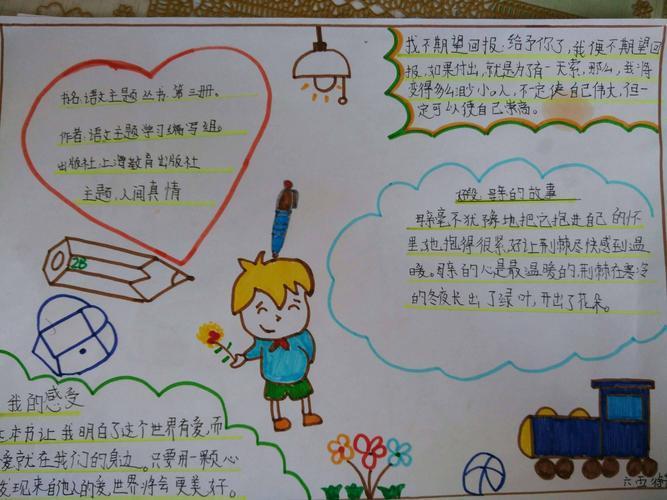 书名:语文主题丛书.第三册、
作者:语文主题学习编写组。
出版社:上海教育出版社
主题:人间真情
我不期望回报:给予你了,我便不期望回
报,如果付出,就是为了有一天索,那么,我将
变得多么渺小。人,不一定使自己伟大,但一
定可以使自己崇高。
母亲的故事
母亲毫不犹豫地把它抱进自己的怀
里,她抱得很紧,好让荆棘尽快感到温
暖。母亲的心是最温暖的,荆棘在寒冷
的冬夜长出了绿叶,开出了花朵。
2B
我的感受
本书让我明白了这个世界有爱,而
爱就在我们的身边。只要用一颗心
发现来自他人的爱,世界将会更美好。
六